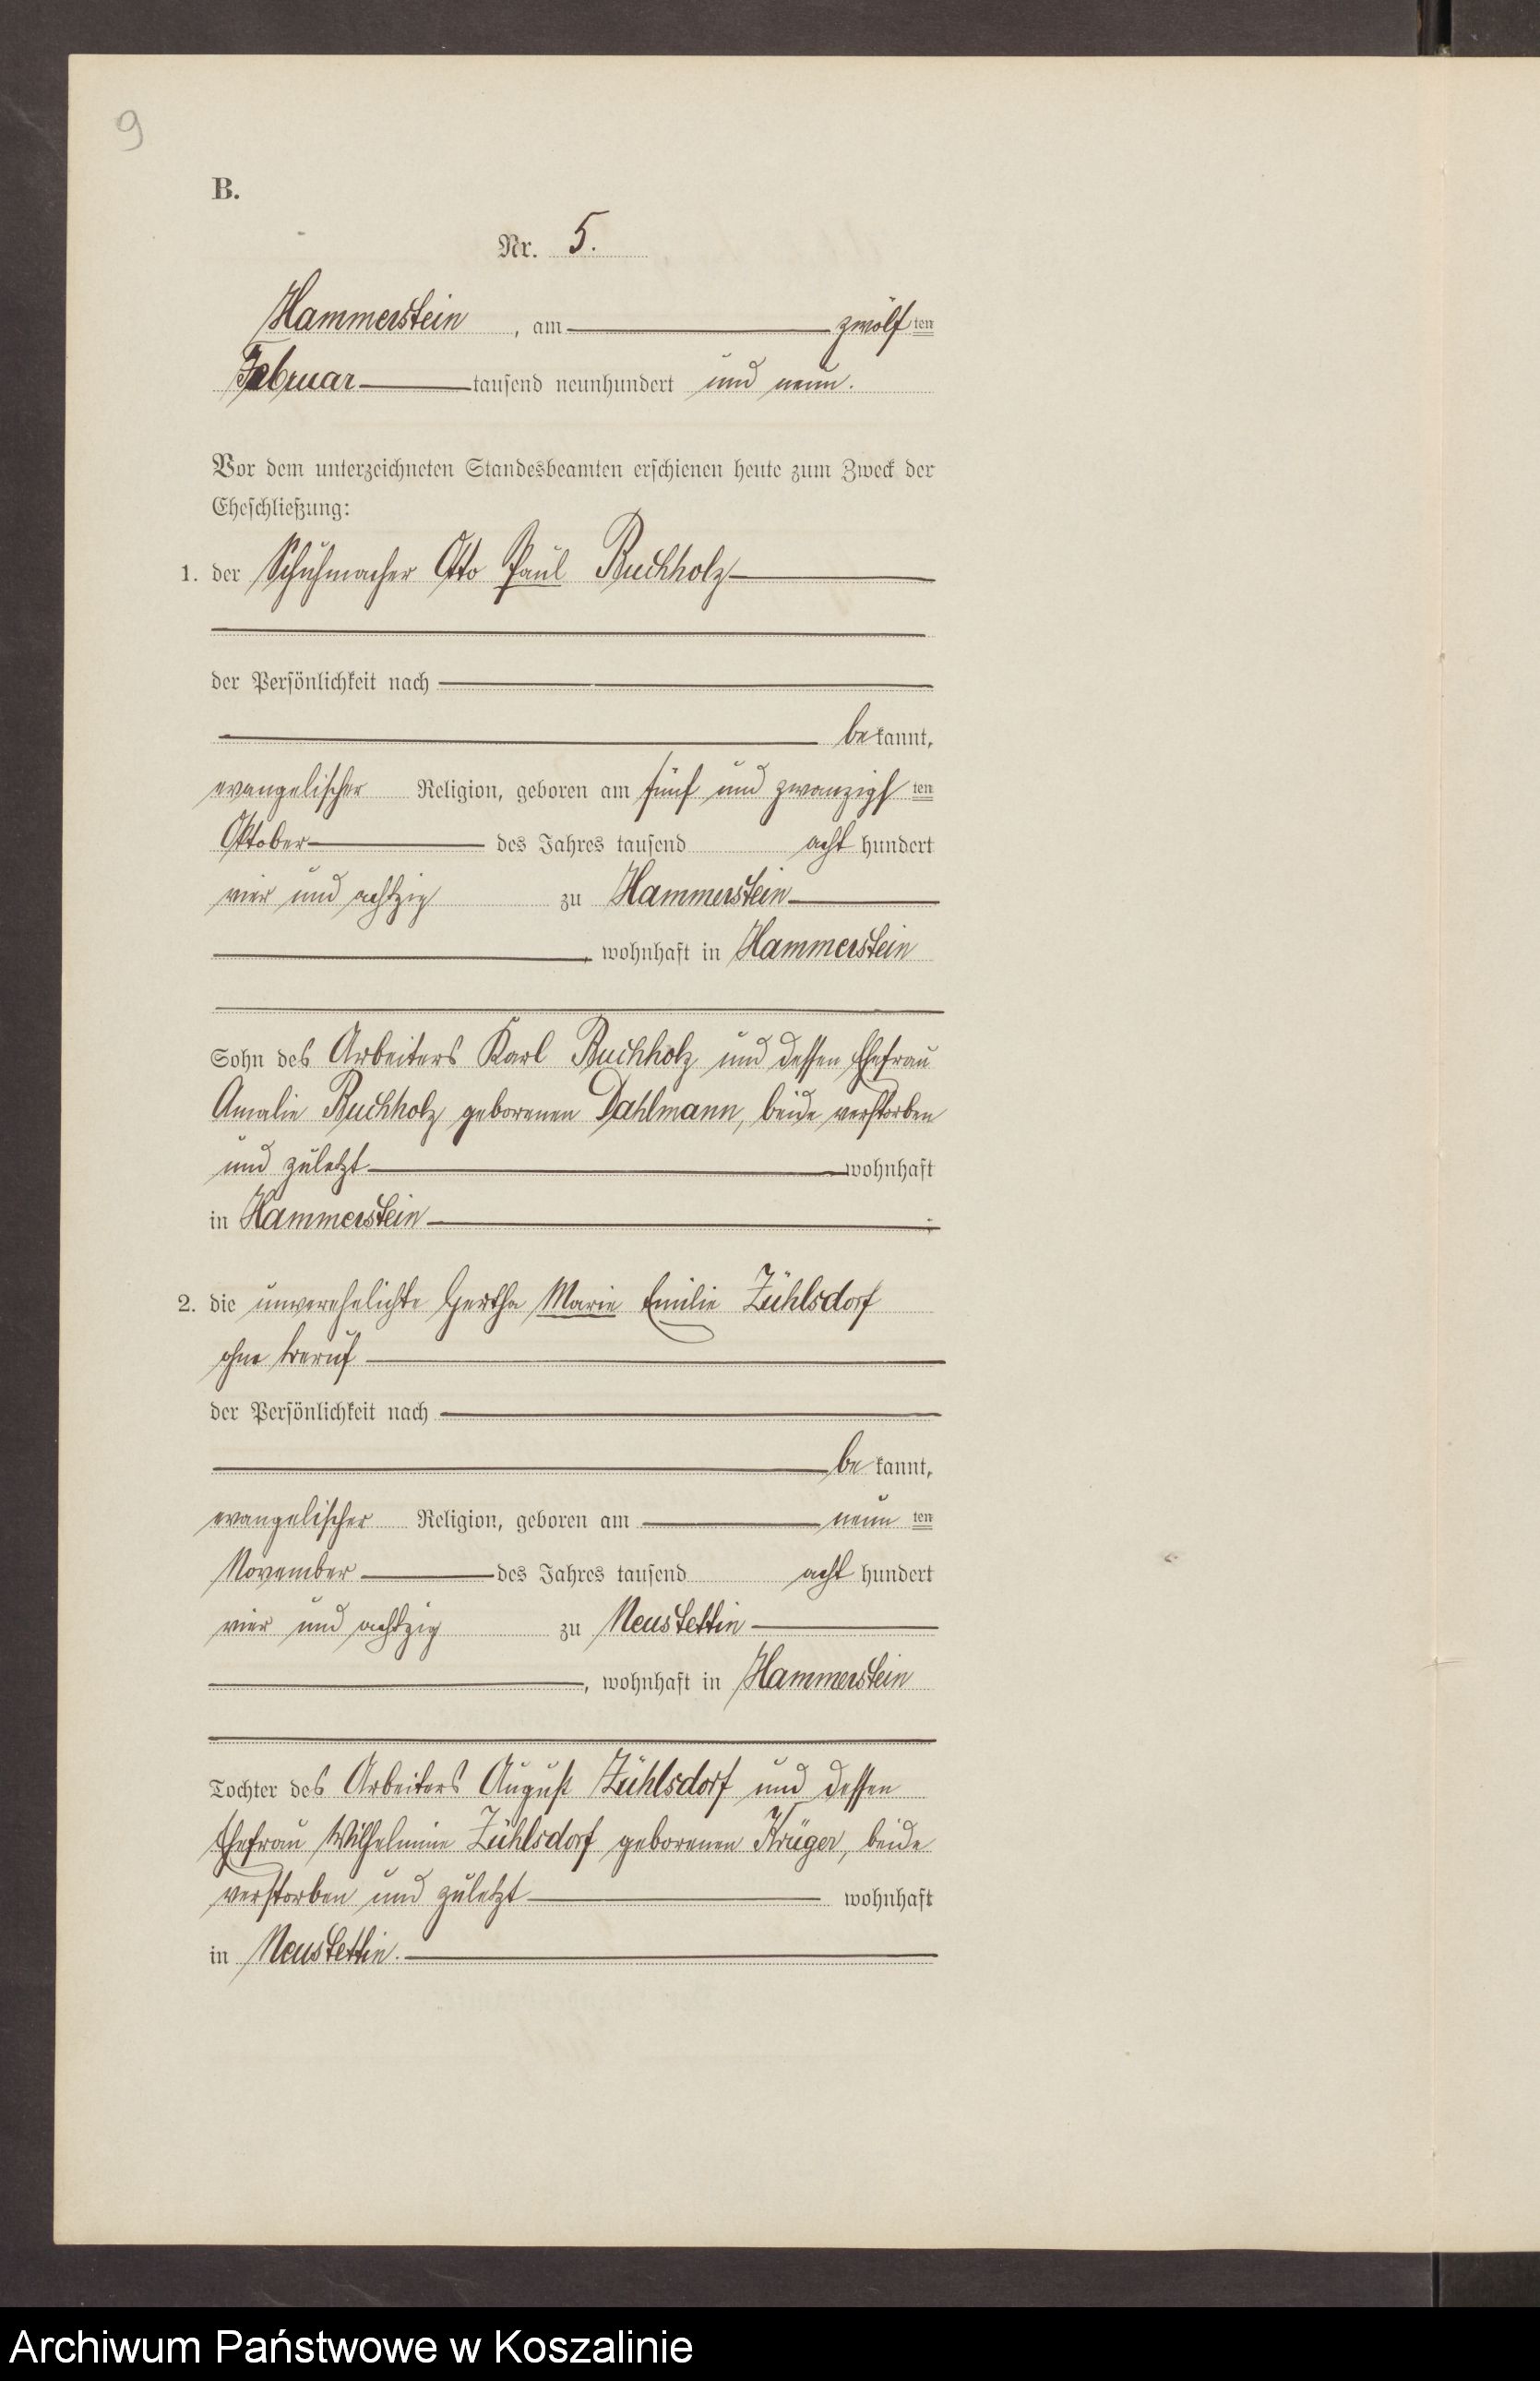 9
B.
Nr. 5.
Hammerstein, am zwölften
Februar tausend neunhundert und neun.
Vor dem unterzeichneten Standesbeamten erschienen heute zum Zweck der
Eheschließung:
1. der Schuhmacher Otto Paul Buchholz
der Persönlichkeit nach
bekannt,
evangelischer Religion, geboren am fünf und zwanzigsten
Oktober des Jahres tausend acht hundert
vier und achtzig zu Hammerstein
, wohnhaft in Hammerstein
Sohn des Arbeiters Karl Buchholz und dessen Ehefrau
Amalie Buchholz geborenen Dahlmann, beide verstorben
und zuletzt wohnhaft
in Hammerstein ;
2. die unverehelichte Hertha Marie Emilie Zühlsdorf
ohne Beruf
der Persönlichkeit nach
bekannt,
evangelischer Religion, geboren am neunten
November des Jahres tausend acht hundert
vier und achtzig zu Neustettin
, wohnhaft in Hammerstein
Tochter des Arbeiters August Zühlsdorf und dessen
Ehefrau Wilhelmine Zühlsdorf geborenen Krüger, beide
verstorben und zuletzt wohnhaft
in Neustettin.
Archiwum Państwowe w Koszalinie